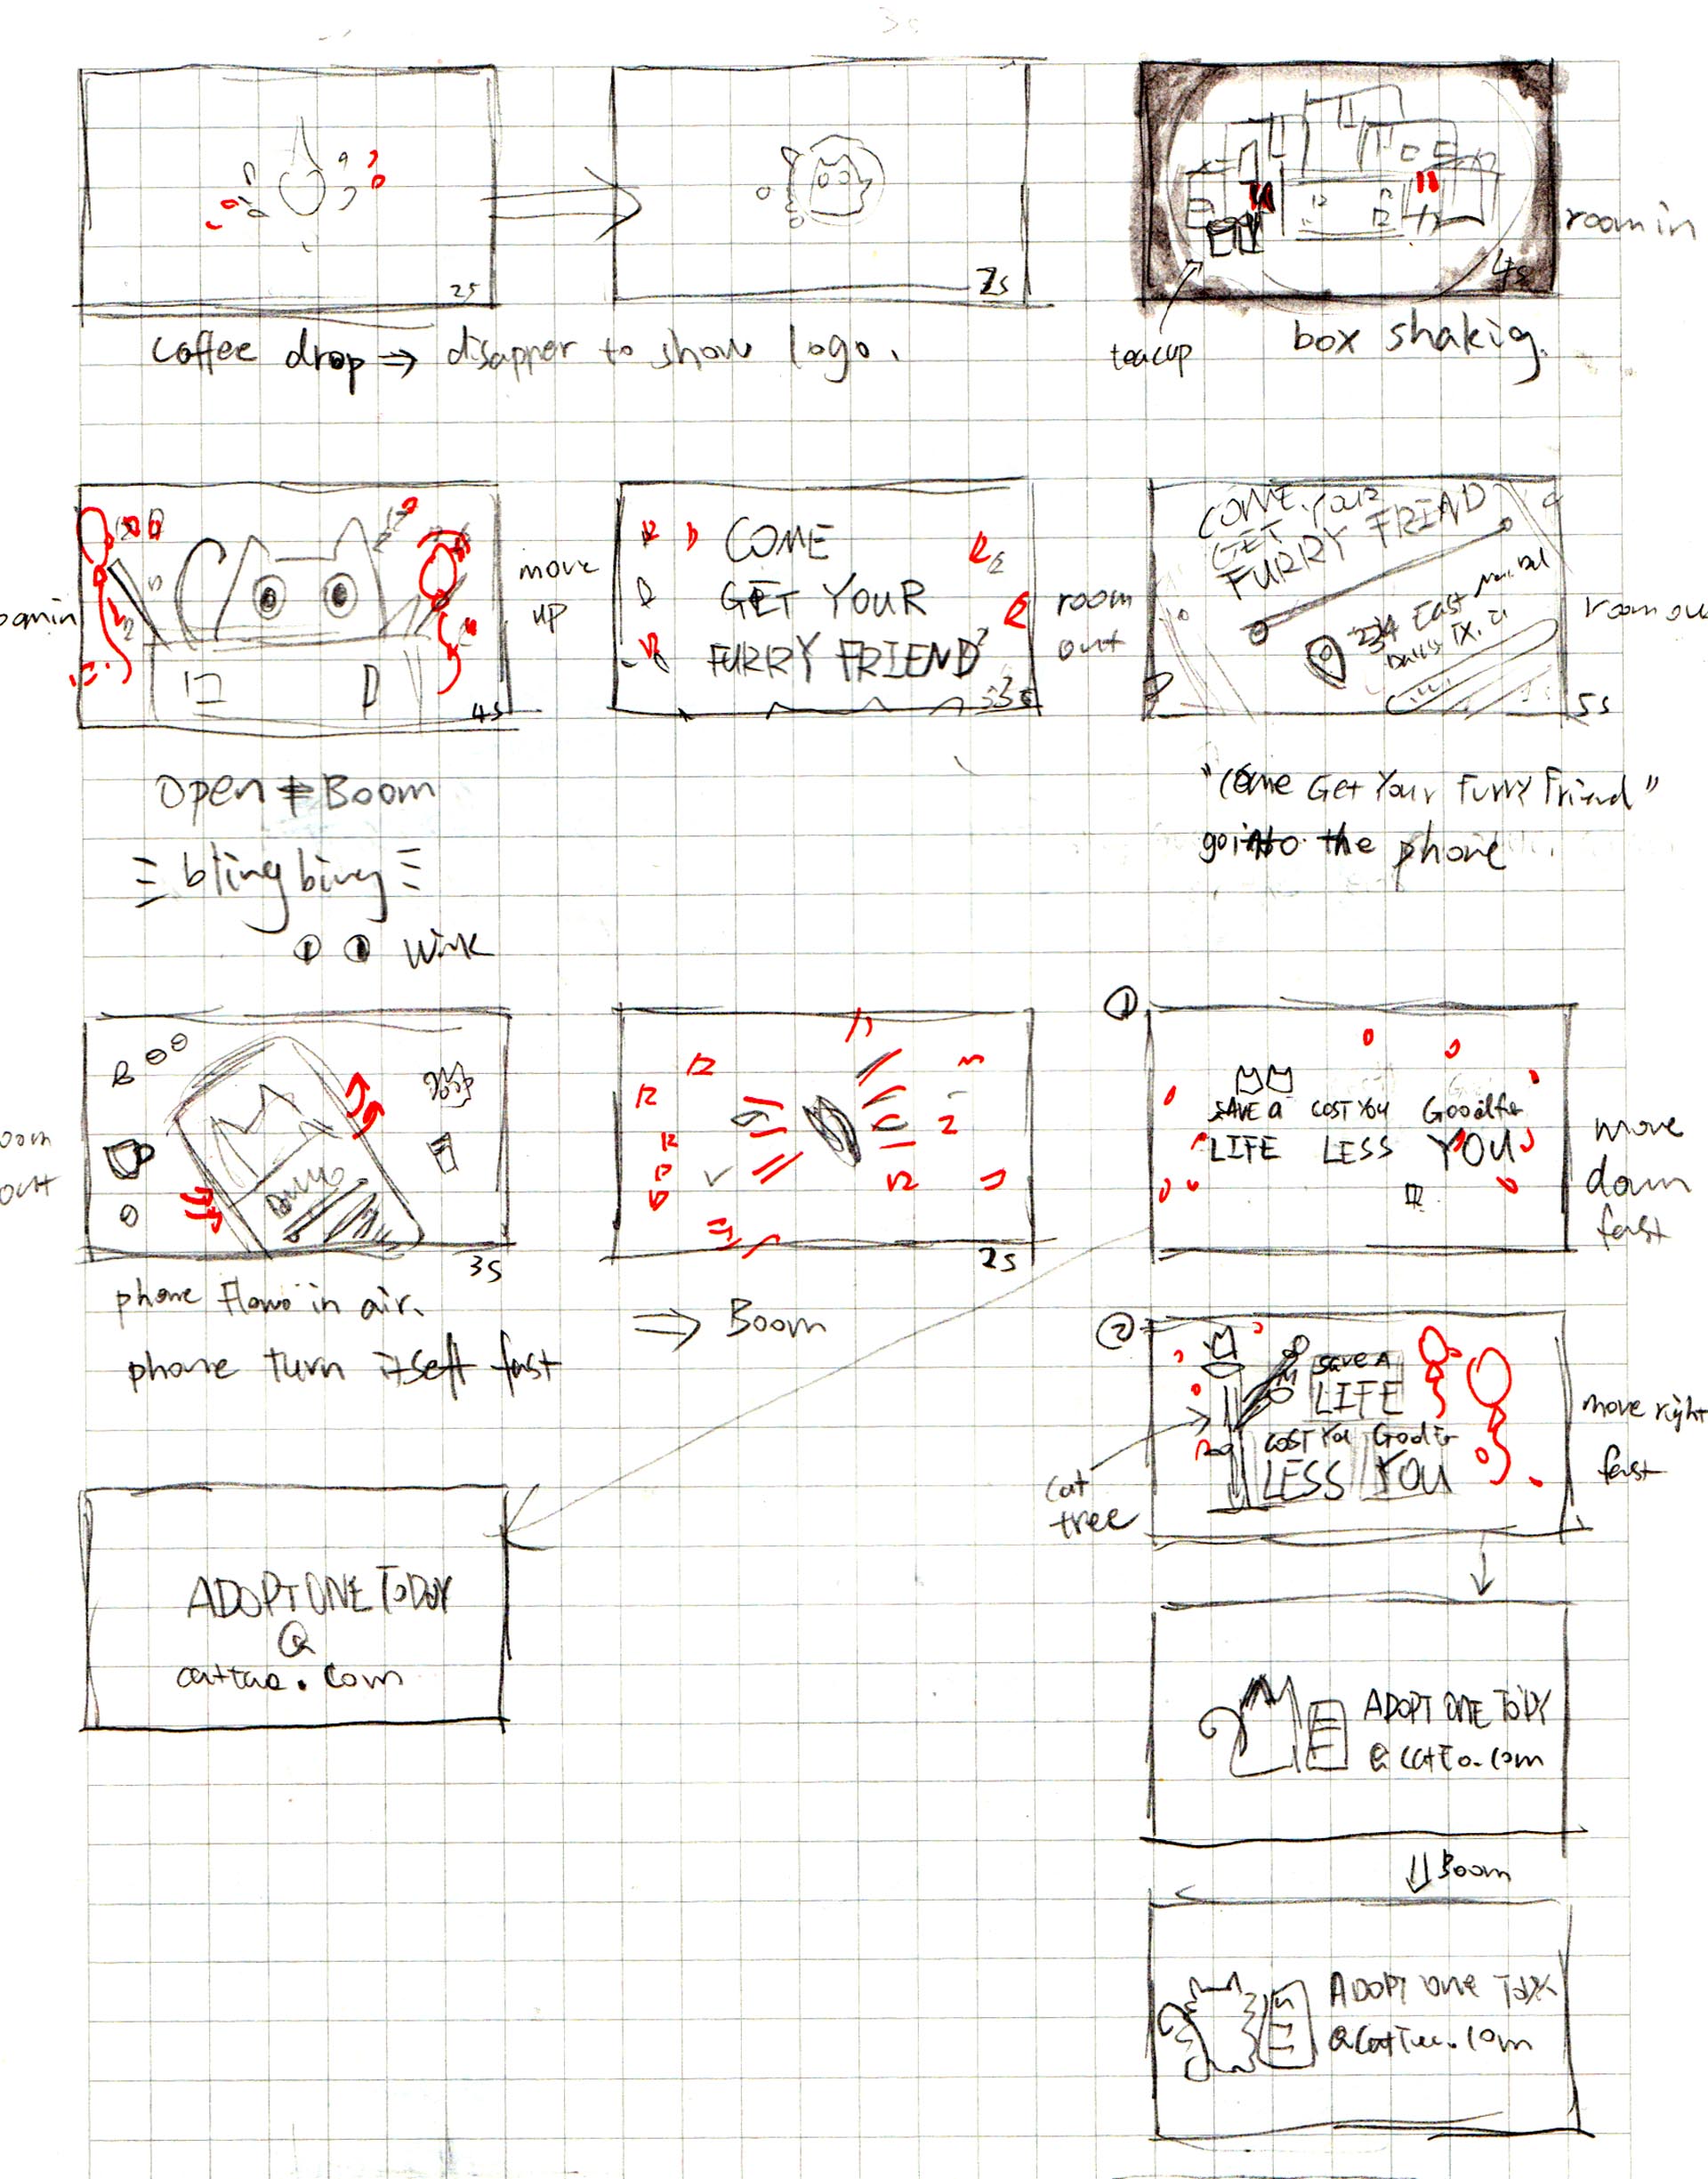 2s
coffee drop ⇒ disapper to show logo.
4s
room in
teacup
box shakig.
4s
move
up
Open ⇒ Boom
bling bling
wink
COME
GET YOUR
FURRY FRIEND
room
out
COME. YOUR
GET
FURRY FRIEND
234 East
5s
room ou
"Come Get Your Furry Friend"
go into the phone
oom
out
3s
phone flow in air.
phone turn itself fast
2s
⇒ Boom
①
SAVE a COST YOU Good for
LIFE LESS YOU
move
down
fast
②
SAVE A
LIFE
COST YOU Good for
LESS YOU
cat
tree
move right
fast
ADOPT ONE TODAY
@
ADOPT ONE TODY
Boom
ADOPT ONE